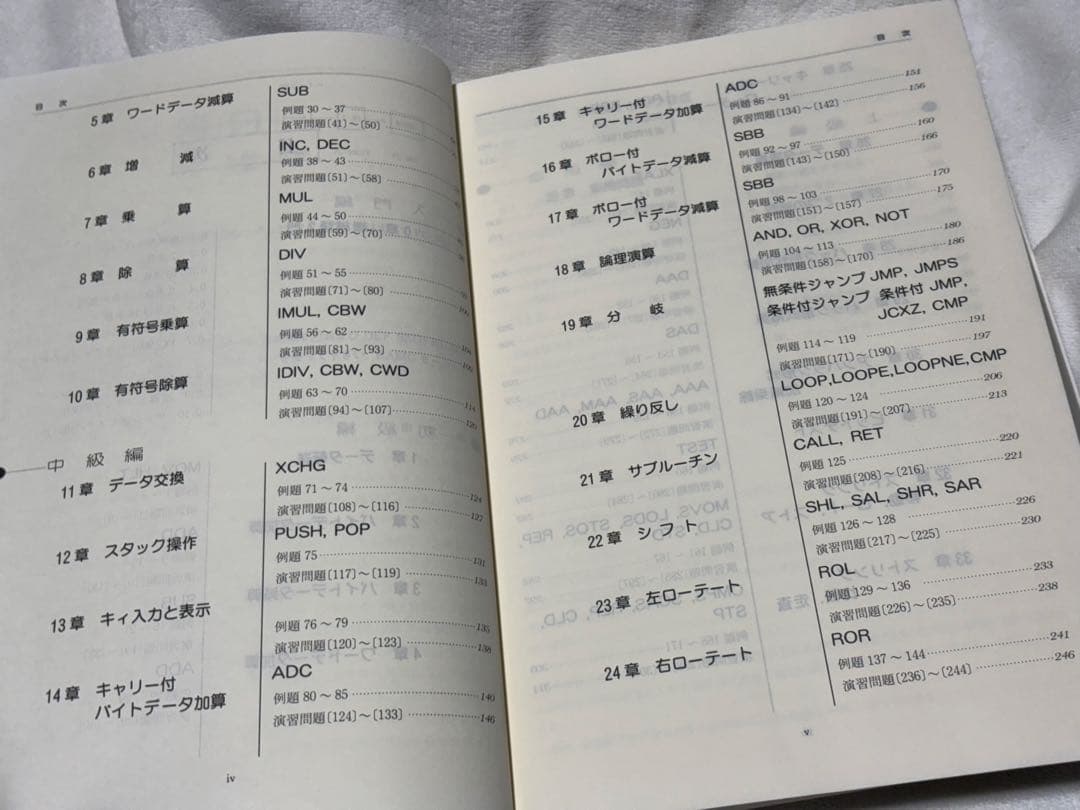 目次
5章 ワードデータ減算
SUB
例題 30～37
演習問題〔41〕～〔50〕
6章 増減
INC, DEC
例題 38～43
演習問題〔51〕～〔58〕
7章 乗算
MUL
例題 44～50
演習問題〔59〕～〔70〕
8章 除算
DIV
例題 51～55
演習問題〔71〕～〔80〕
9章 有符号乗算
IMUL, CBW
例題 56～62
演習問題〔81〕～〔93〕
10章 有符号除算
IDIV, CBW, CWD
例題 63～70 114
演習問題〔94〕～〔107〕 120
中級編
11章 データ交換
XCHG
例題 71～74 124
演習問題〔108〕～〔116〕 127
12章 スタック操作
PUSH, POP
例題 75 131
演習問題〔117〕～〔119〕 133
13章 キィ入力と表示
例題 76～79 135
演習問題〔120〕～〔123〕 138
14章 キャリー付
バイトデータ加算
ADC
例題 80～85 140
演習問題〔124〕～〔133〕 146
iv
目次
15章 キャリー付
ワードデータ加算
ADC
例題 86～91 151
演習問題〔134〕～〔142〕 156
16章 ボロー付
バイトデータ減算
SBB
例題 92～97 160
演習問題〔143〕～〔150〕 166
17章 ボロー付
ワードデータ減算
SBB
例題 98～103 170
演習問題〔151〕～〔157〕 175
18章 論理演算
AND, OR, XOR, NOT
例題 104～113 180
演習問題〔158〕～〔170〕 186
19章 分岐
無条件ジャンプ JMP, JMPS
条件付ジャンプ 条件付 JMP,
JCXZ, CMP
例題 114～119 191
演習問題〔171〕～〔190〕 197
20章 繰り反し
LOOP,LOOPE,LOOPNE,CMP
例題 120～124 206
演習問題〔191〕～〔207〕 213
21章 サブルーチン
CALL, RET
例題 125 220
演習問題〔208〕～〔216〕 221
22章 シフト
SHL, SAL, SHR, SAR
例題 126～128 226
演習問題〔217〕～〔225〕 230
23章 左ローテート
ROL
例題 129～136 233
演習問題〔226〕～〔235〕 238
24章 右ローテート
ROR
例題 137～144 241
演習問題〔236〕～〔244〕 246
v